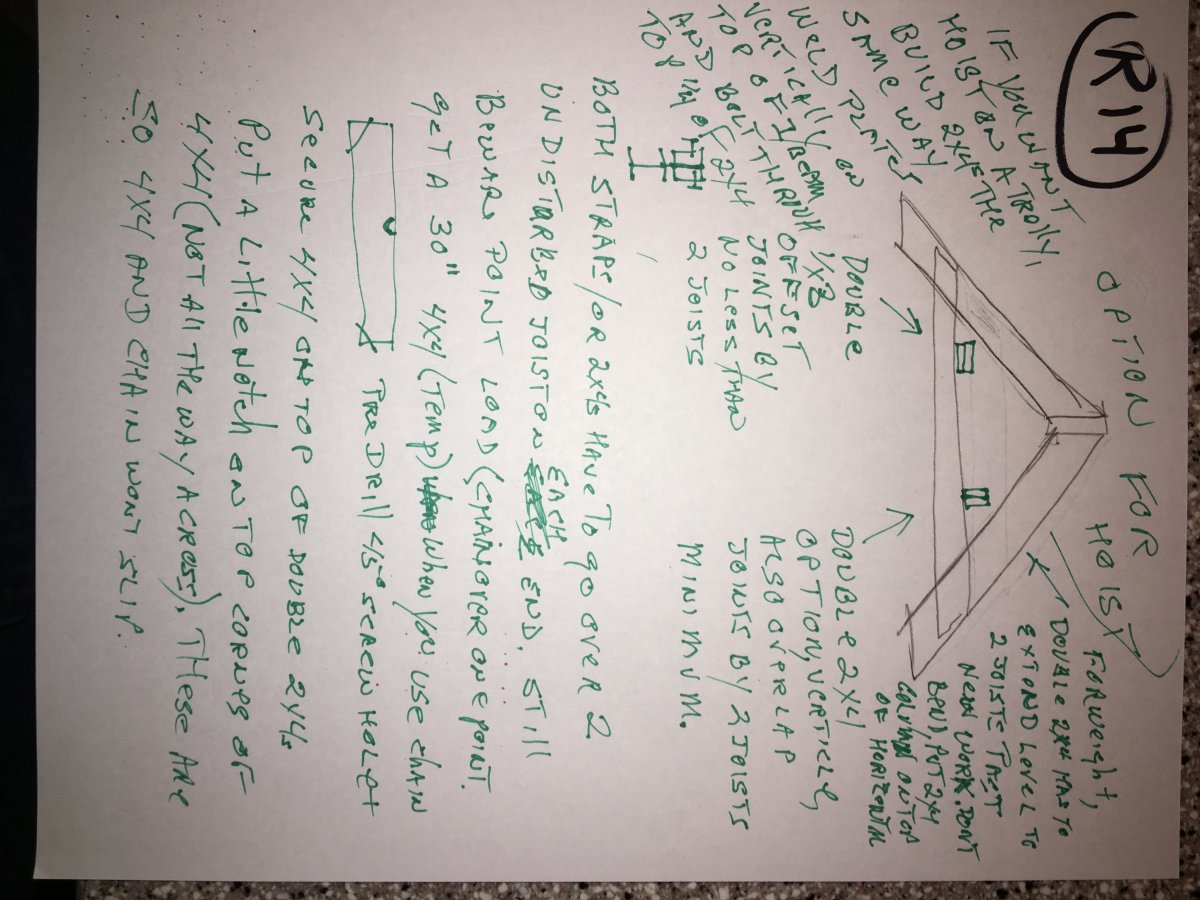 R14
OPTION FOR
HOIST
IF YOU WANT
HOIST ON A TROLLY,
BUILD 2X4S THE
SAME WAY
WELD PLATES
VERTICALLY ON
TOP OF I/BEAM
BOLT THRUH
TOP OF 2X4
AND
TOP
FORWEIGHT,
DOUBLE 2X4 HAS TO
EXTOND LEVEL TO
2 JOISTS PAST
NEON WORK. DONT
BEND, PUT 2X4
COLUMN ON TOP
OF HORIZONTAL
DOUBLE
1/X3
OFFSET
JOINTS BY
NO LESS THAN
2 JOISTS
DOUBLE 2X4
OPTION, VERTICLE,
ALSO OVERLAP
JOINTS BY 2 JOISTS
MINIMUM.
BOTH STRAPS/OR 2X4S HAVE TO GO OVER 2
UNDISTURBED JOIST ON EACH END. STILL
BEWARE POINT LOAD (CHAIN OVER ONE POINT.
GET A 30" 4X4 (TEMP) WHEN YOU USE CHAIN
PREDRILL 45° SCREW HOLE +
SECURE 4X4 ON TOP OF DOUBLE 2X4S
PUT A LITTLE NOTCH ON TOP CORNERS OF
4X4 (NOT ALL THE WAY ACROSS). THESE ARE
SO 4X4 AND CHAIN WONT SLIP.